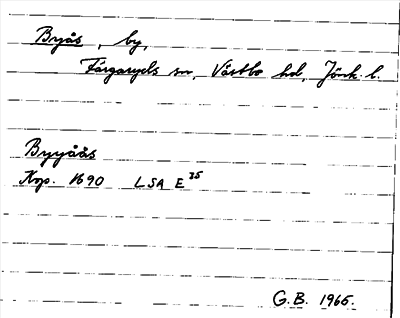 Byås, by,
Färgaryds sn, Västbo hd, Jönk. l.
Byyåås
Kop. 1690 LSA E 25
G.B. 1965.